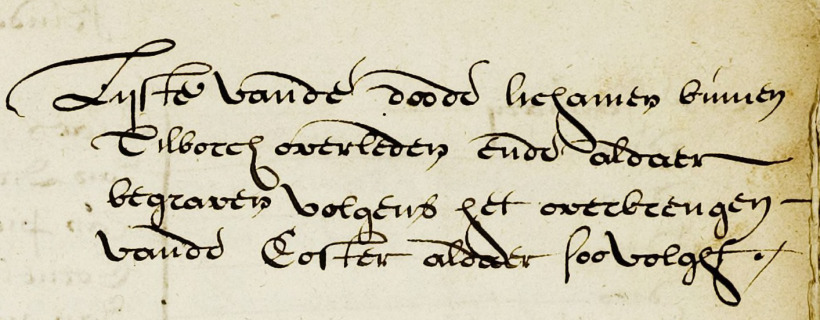 Lijste vande doode lichamen binnen
Tilborch overleden ende aldaer
begraven volgens het overbrengen
vande Coster aldaer soo volght